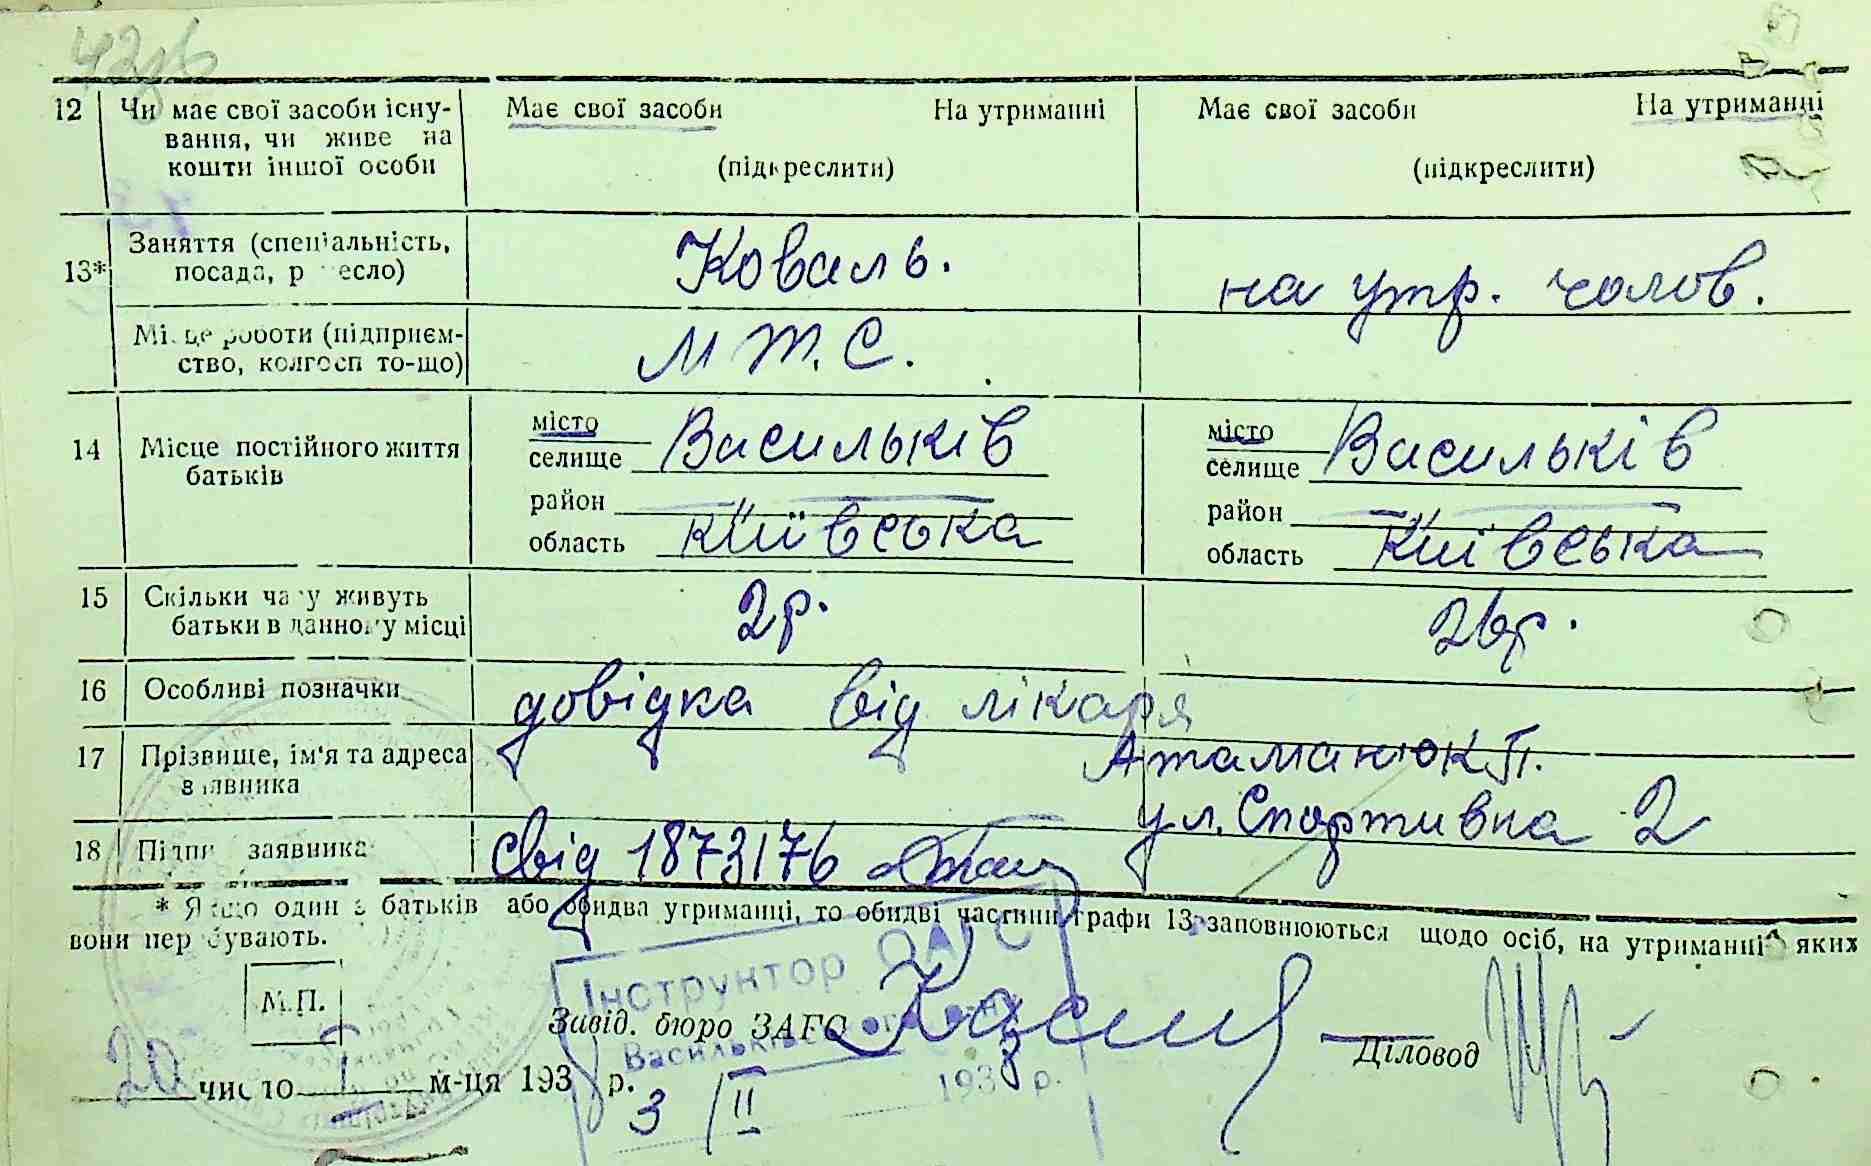 12 Чи має свої засоби існу- Має свої засоби На утриманні Має свої засоби На утриманні
вання, чи живе на
кошти іншої особи (підкреслити) (підкреслити)
Заняття (спеціальність, Коваль. на утр. чолов.
13* посада, р есло)
Місце роботи (підприєм- М.Т.С.
ство, колгосп то-що)
місто Васильків місто Васильків
14 Місце постійного життя селище селище
батьків
район — район —
область Київська область Київська
15 Скільки часу живуть 2р. 26р.
батьки в данному місці
16 Особливі позначки довідка від лікаря
17 Прізвище, ім'я та адреса Атаманюк П.
заявника ул. Спортивна 2
18 Підпи заявника свід 1873176
* Якщо один з батьків або обидва утриманні, то обидві частини графи 13 заповнюються щодо осіб, на утриманні яких
вони перебувають.
Інструктор ОАГС
М.П.
Завід. бюро ЗАГС
Васильківського
Діловод
20 число 1 м-ця 193 р.
193 р.
3/II